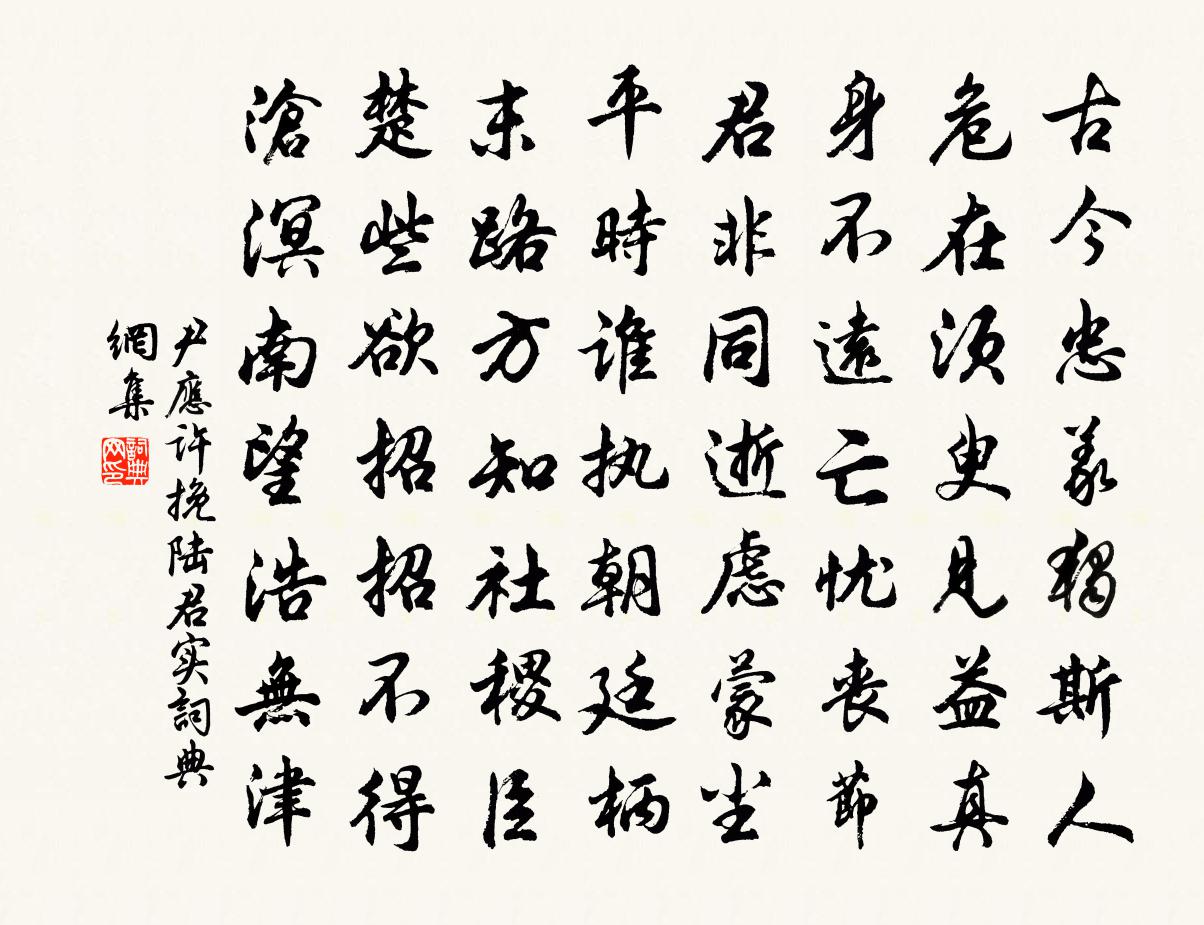 古今忠義獨斯人
危在須臾見益真
身不遠亡忧喪節
君非同逝慮蒙尘
平時谁执朝廷柄
末路方知社稷臣
楚些欲招招不得
滄溟南望浩無津
尹應许挽陆君实詞典
網集
詞典
网印